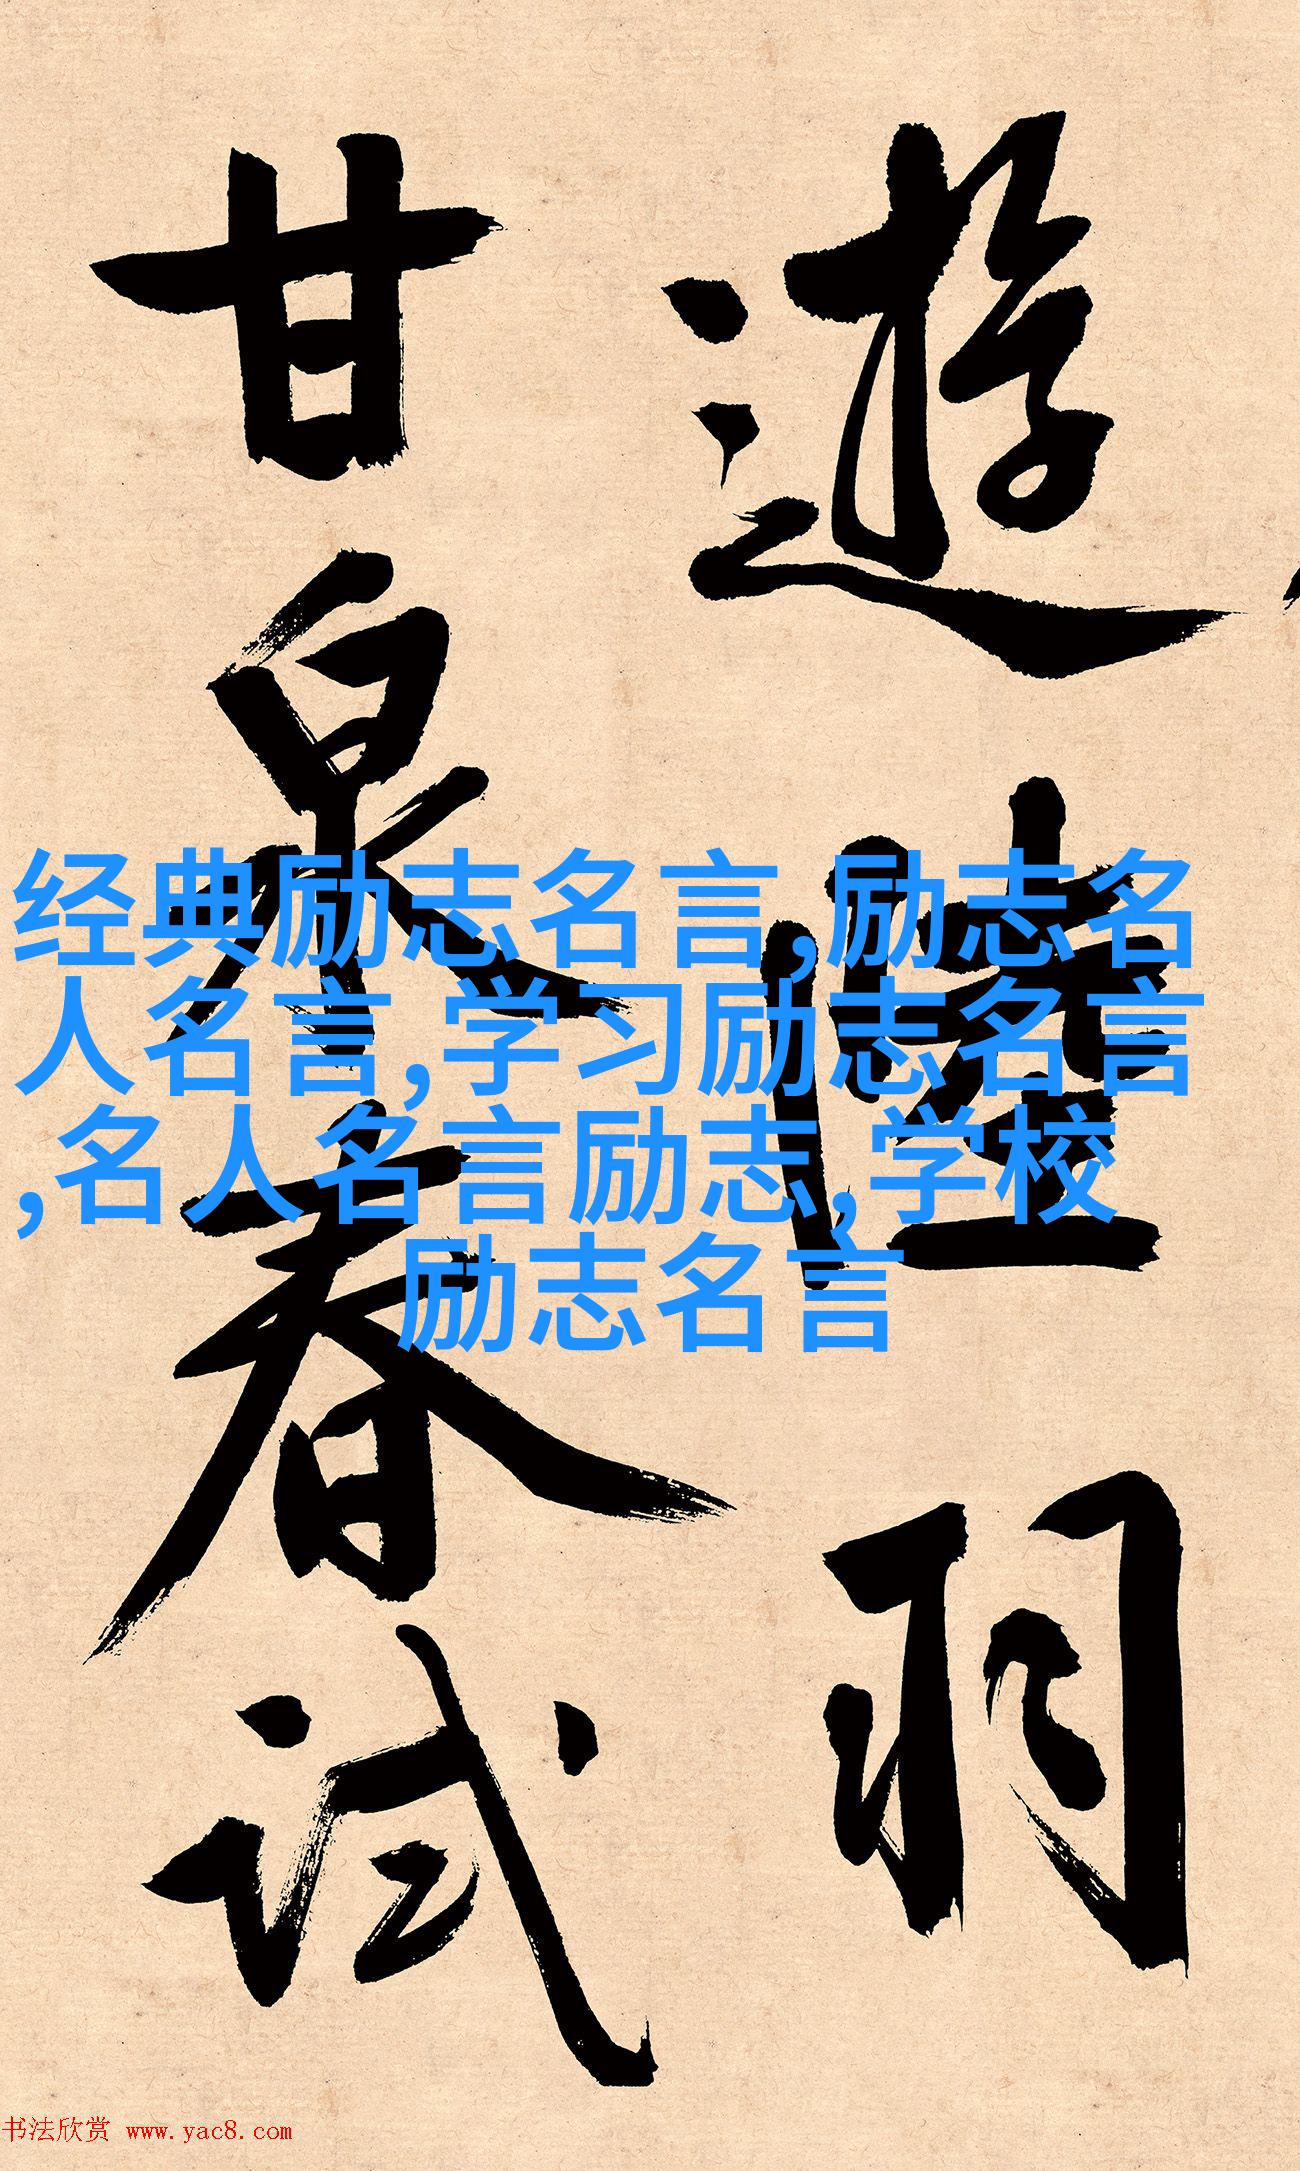 遊陸羽
甘泉春試
经典励志名言,励志名
人名言,学习励志名言
,名人名言励志,学校
励志名言
书法欣赏 www.yac8.com